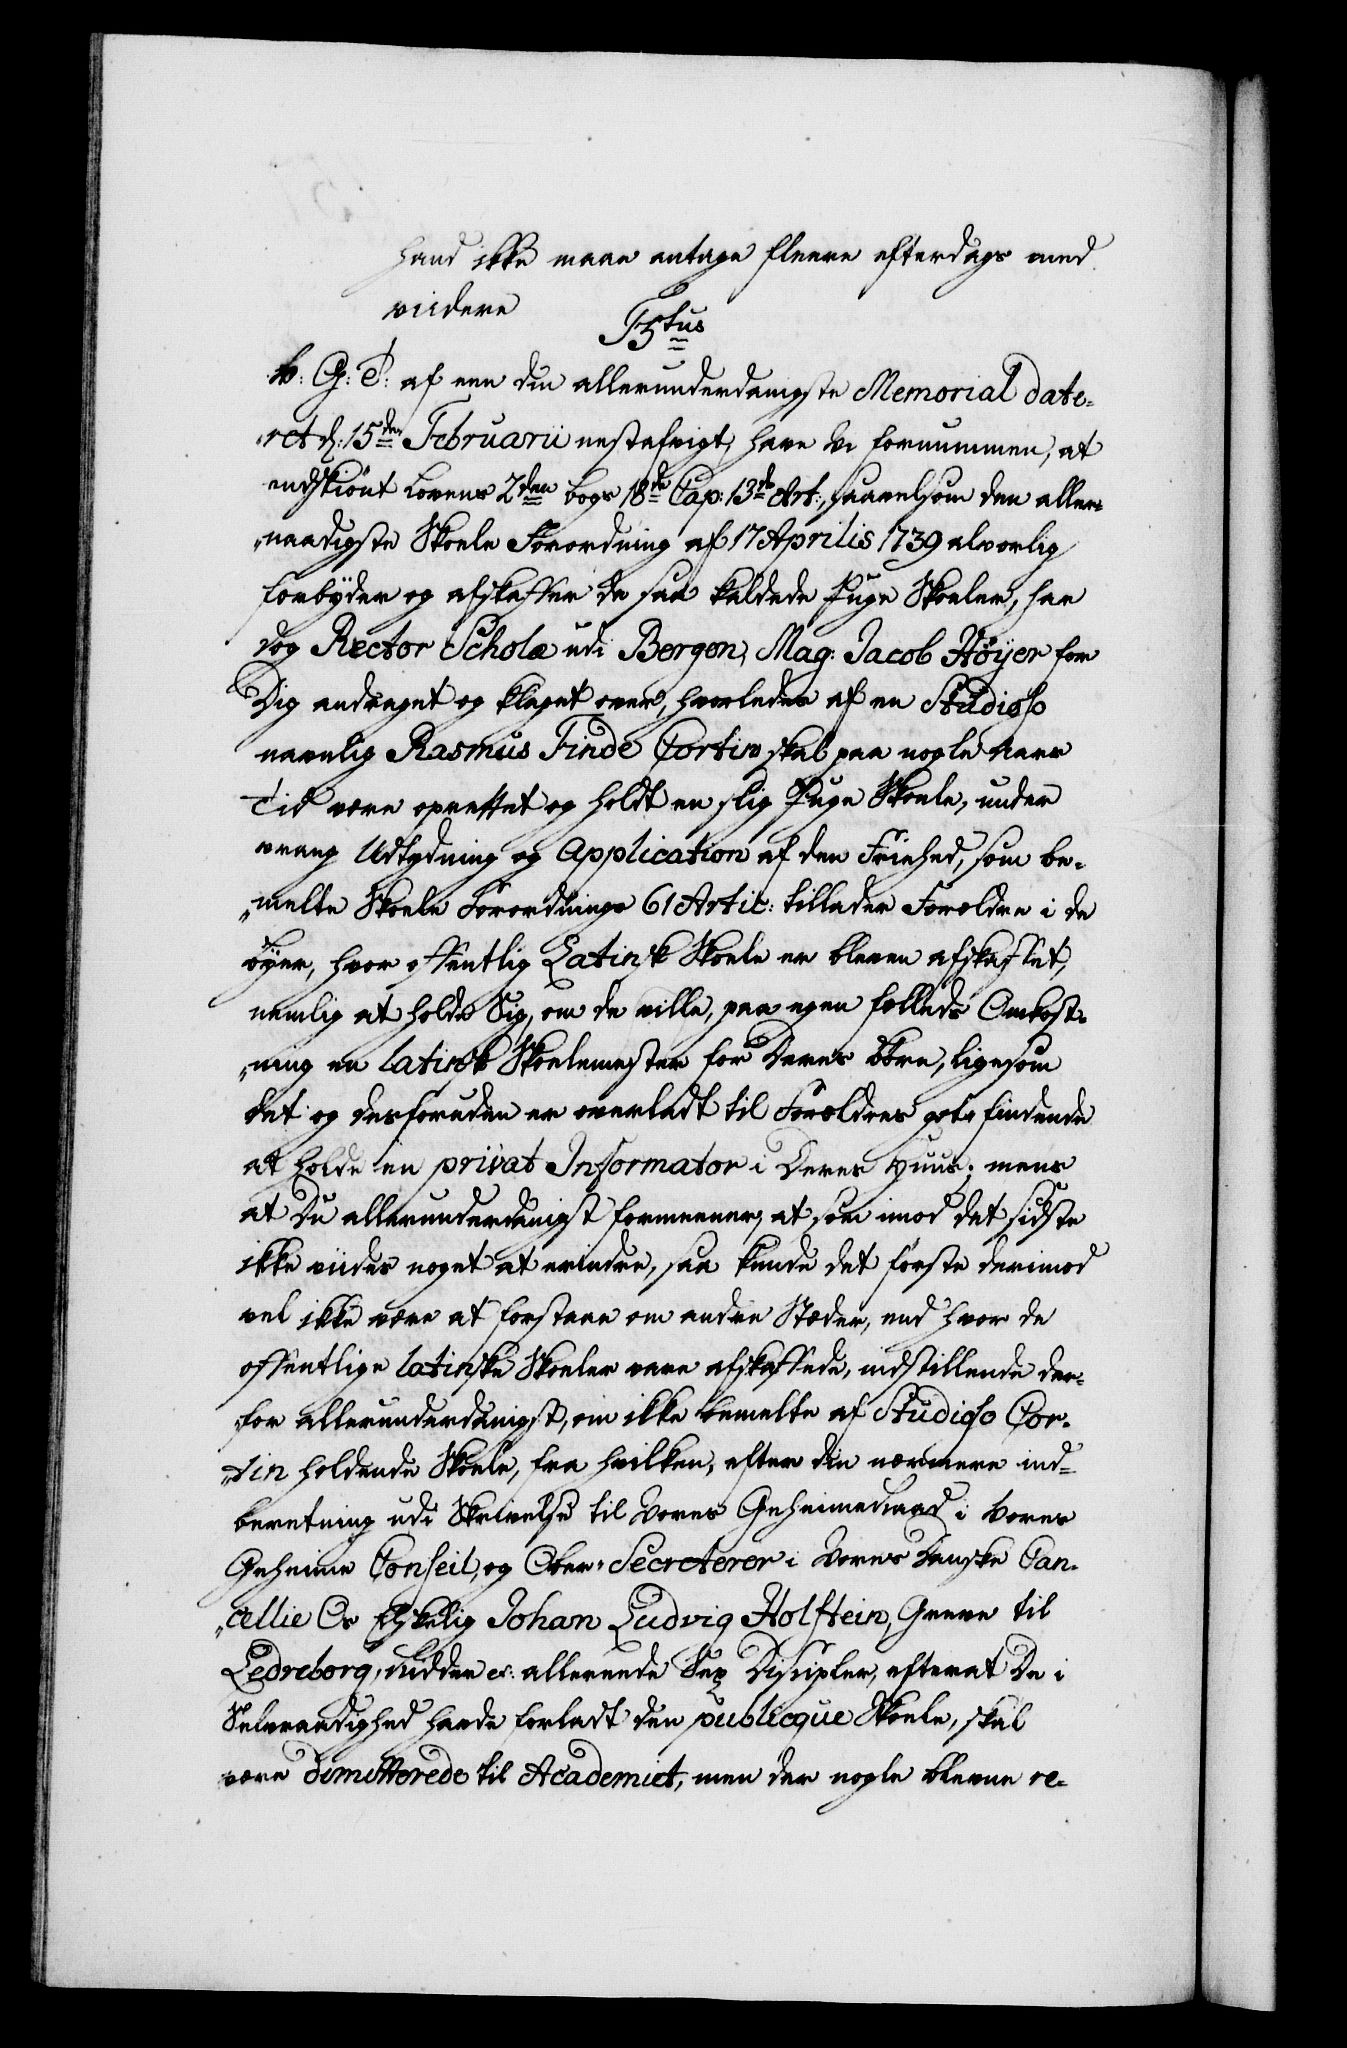 hand ikke maae antage fleere efterdags med
viidere
Ftus
W: G: T: af een din allerunderdanigste Memorial date-
„ret d: 15den Februarii nestafvigt, have Vi fornummen, at
endskiönt Lovens 2den bogs 18de Cap: 13de Art:, saavelsom den aller-
„naadigste Skoele Forordning af 17 Aprilis 1739 alvorlig
forbyder og afskaffer de saa kaldede Puge Skoeler, har
dog Rector Scholæ udi Bergen, Mag: Jacob Höyer for
Dig andraget og klaget over, hvorledes af en Studioso
navnlig Rasmus Finde Cortin skal paa nogle Aars
Tid være oprettet og holdt en slig Puge Skoele, under
vrang Udtydning og Application af den Friehed, som be-
„melte Skoele Forordnings 61 Artic: tillader Forældre i de
Byer, hvor offentlig Latinsk Skoele er bleven afskaffet,
nemlig at holde Sig, om de ville, paa egen fælleds Omkost-
„ning en latinsk Skoelemester for Deres Börn, ligesom
det og desforuden er overladt til Forældres got findende
at holde en privat Informator i Deres Huus; mens
at Du allerunderdanigst formeener, at som imod det sidste
ikke viides noget at erindre, saa kunde det förste derimod
vel ikke være at forstaae om andre Stæder, end hvor de
offentlige latinske Skoeler vare afskaffede, indstillende der-
for allerunderdanigst, om ikke bemelte af Studioso Cor-
„tin holdende Skoele, fra hvilken, efter din nærmere ind-
beretning udi Skrivelse til Vores Geheimeraad i Vores
Geheime Conseil, og Ober-Secreterer i Vores Danske Can-
„cellie Os Elskelig Johan Ludvig Holstein, Greve til
Ledreborg, Ridder etc: allerede Sex Discipler, efterat De i
Selvraadighed havde forladt den publicque Skoele, skal
være dimitterede til Academiet, men der nogle blevne re-